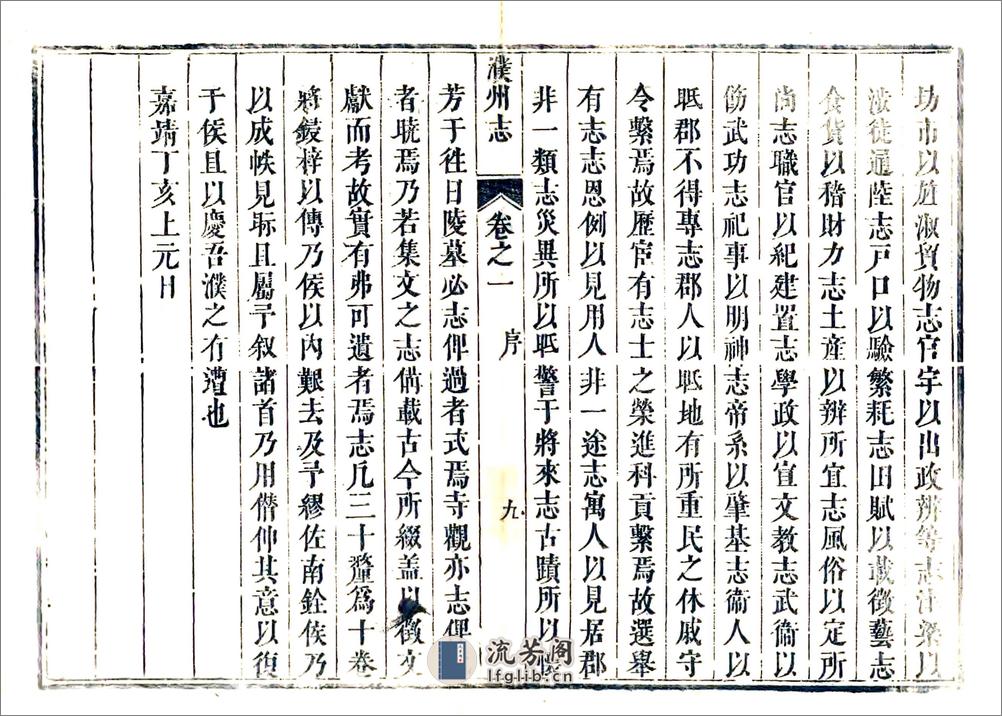 坊市以旌淑貿物志官宇以出政辨等志津梁以
涉徒通陸志戶口以驗繁耗志田賦以裁徵藝志
食貨以稽財力志土產以辨所宜志風俗以定所
尚志職官以紀建置志學政以宣文教志武衞以
飭武功志祀事以明神志帝系以肇基志衞人以
眡郡不得專志郡人以眡地有所重民之休戚守
令繫焉故歷宦有志士之榮進科貢繫焉故選舉
有志志恩例以見用人非一途志寓人以見居郡
非一類志災異所以眡警于將來志古蹟所以
濮州志
卷之一
序
九
芳于徃日陵墓必志俾過者式焉寺觀亦志俾
者曉焉乃若集文之志俻載古今所綴盖以徵文
獻而考故實有弗可遺者焉志凡三十釐爲十卷
將鋟梓以傳乃侯以內艱去及予繆佐南銓侯乃
以成帙見眎且屬予叙諸首乃用僭伸其意以復
于侯且以慶吾濮之有遭也
嘉靖丁亥上元日
流芳阁
lfglib.cn